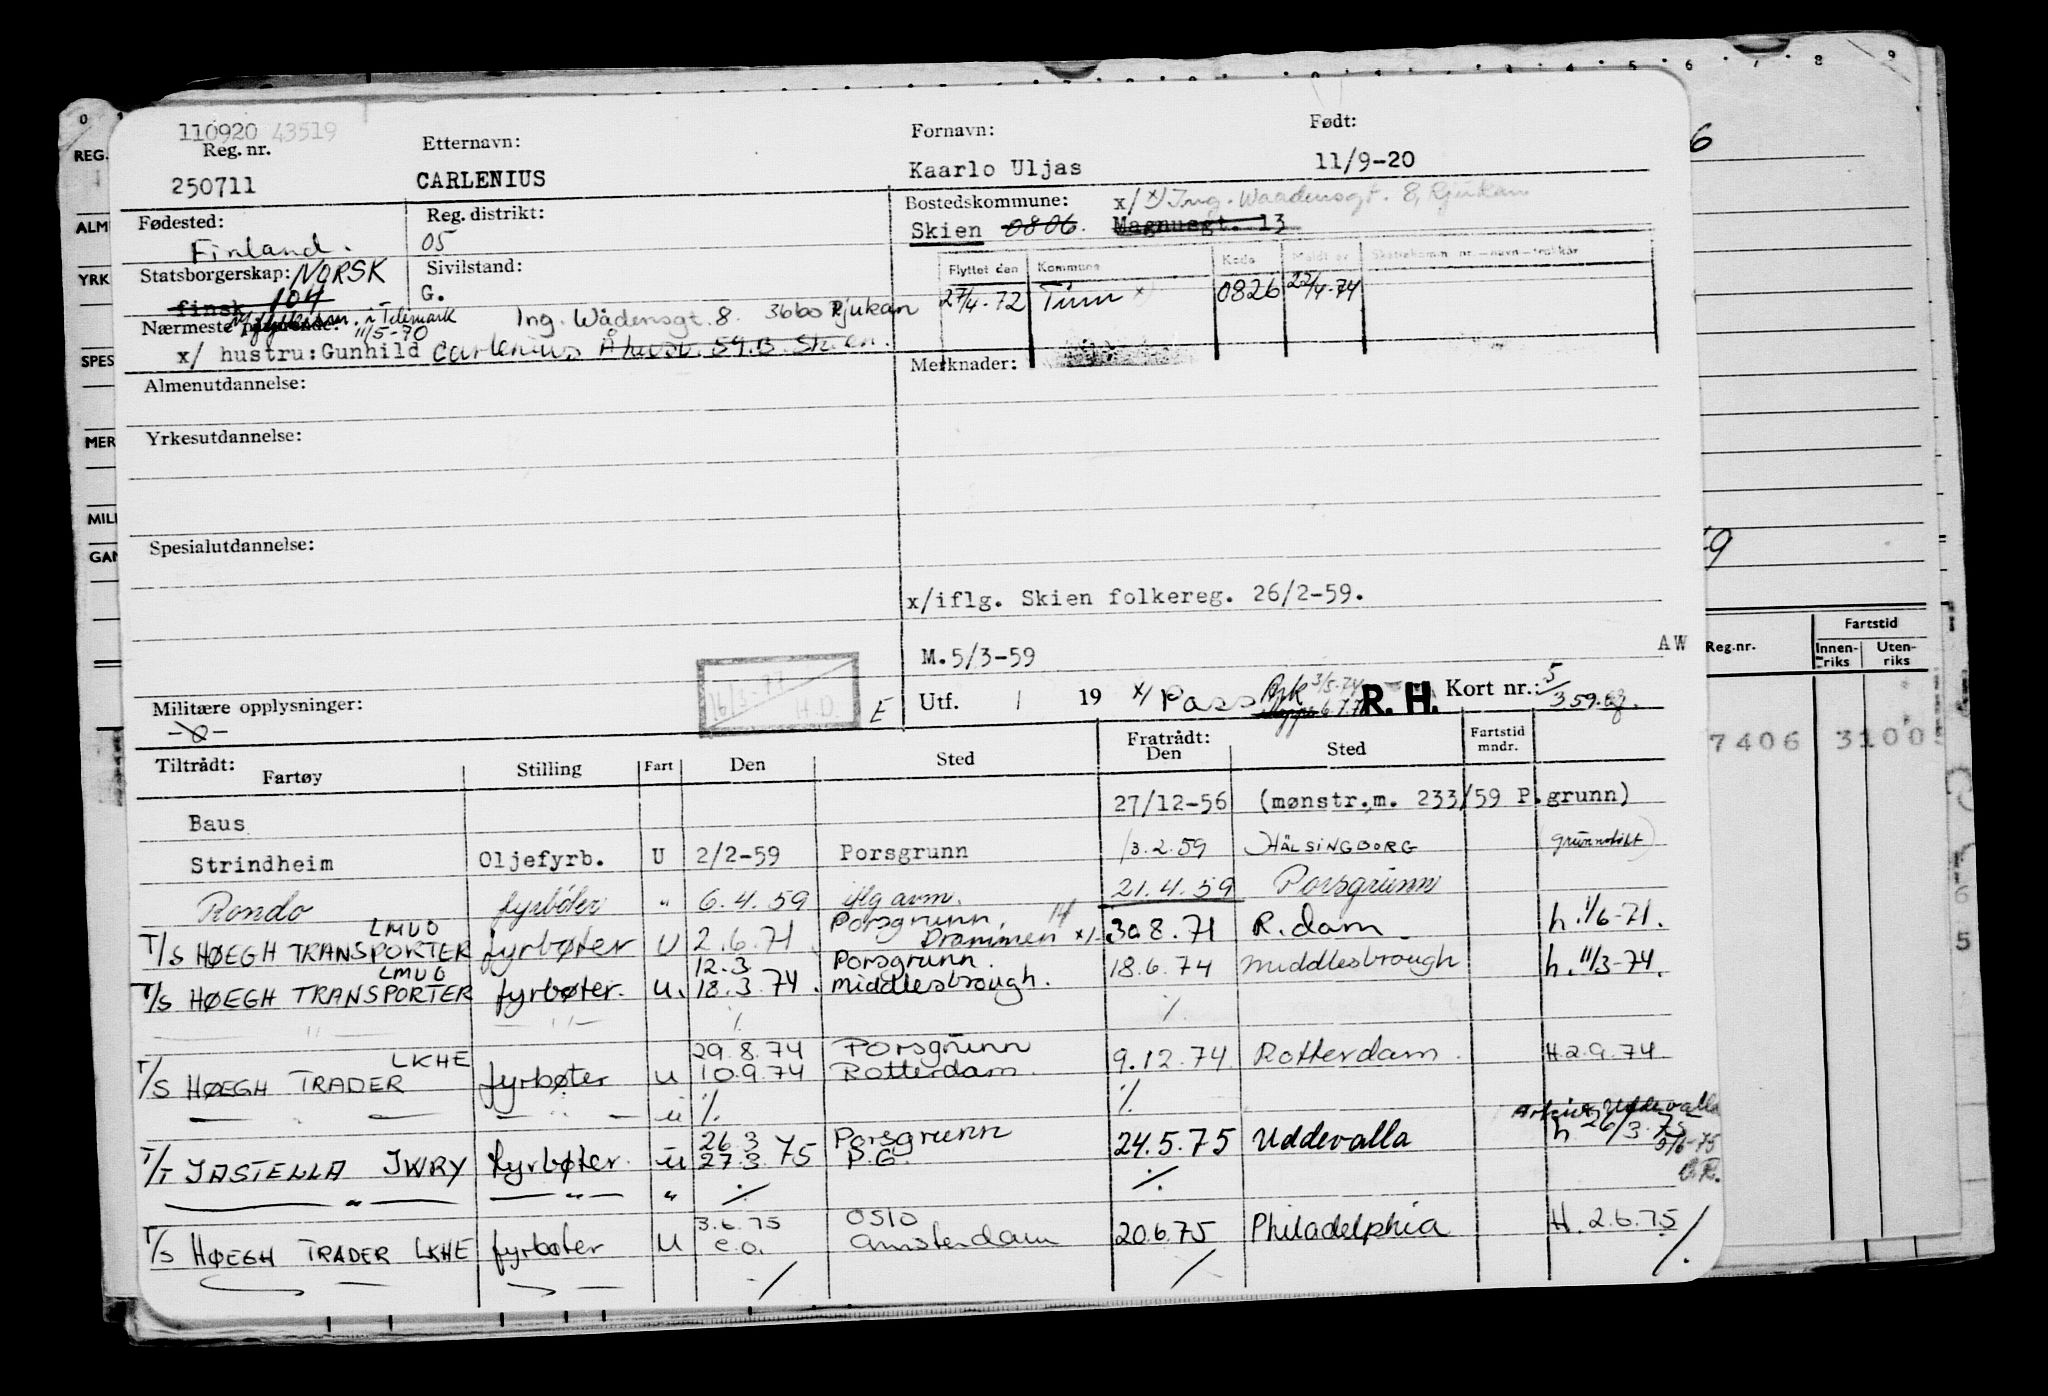 110920 43519
Reg. nr. Etternavn: Fornavn: Født:
250711 CARLENIUS Kaarlo Uljas 11/9-20
Fødested: Reg. distrikt: Bostedskommune: x/ x) Ing. Waadensgt. 8, Rjukan
Finland. 05 Skien 0806. Magnusgt. 13
Statsborgerskap: NORSK Sivilstand: Flyttet den Kommune Kode Meldt av
finsk 104 G. 27/4-72 Tinn x) 0826 22/4-74
Nærmeste i Telemark 11/5-70 Ing. Wådensgt. 8. 3660 Rjukan
x/ hustru: Gunhild Carlenius 59.B. Skien.
Almenutdannelse: Merknader:
Yrkesutdannelse:
Spesialutdannelse:
x/iflg. Skien folkereg. 26/2-59.
M. 5/3-59 AW
16/3-77 H.D. E Utf. 1 19 x/ Pass 3/5-74 R.H. Kort nr.: 5/3 59.
Militære opplysninger:
-0-
Tiltrådt: Fartøy Stilling Fart Den Sted Fratrådt: Den Sted Fartstid mndr.
Baus 27/12-56 (mønstr.m. 233/59 P.grunn)
Strindheim Oljefyrb. U 2/2-59 Porsgrunn 13.2.59 HÄLSINGBORG
Rondo fyrbøter " 6.4.59 iflg avm. 21.4.59 Porsgrunn
T/S HØEGH TRANSPORTER LMUO fyrbøter U 2.6.71 Porsgrunn Drammen x/ 30.8.71 R.dam h. 1/6-71.
T/S HØEGH TRANSPORTER LMUO fyrbøter. U. 12.3 18.3.74. Porsgrunn. Middlesbrough. 18.6.74 Middlesbrough h. 11/3-74.
— " — — " — ./. ./.
T/S HØEGH TRADER LKHE fyrbøter U 29.8.74 10.9.74 Porsgrunn Rotterdam. 9.12.74 Rotterdam. H 2.9.74
— — — " — U ./. ./.
T/T JASTELLA JWRY fyrbøter. U 26.3 27.3.75 Porsgrunn P.G. 24.5.75 Uddevalla Uddevalla h 26/3.75
— " — — " — " ./. ./.
T/S HØEGH TRADER LKHE fyrbøter U 3.6.75 e.o. Oslo Amsterdam 20.6.75 Philadelphia H. 2.6.75 ./.
REG.
ALM
YRK
SPES
MER
MILI
GAN
Reg.nr. Fartstid
Innen-riks Uten-riks
7406 3100